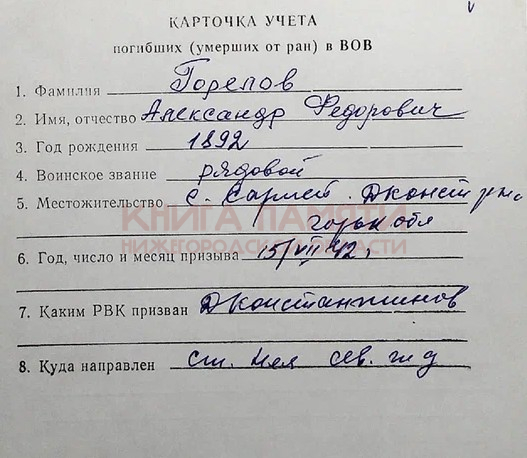 КАРТОЧКА УЧЕТА
погибших (умерших от ран) в ВОВ
1. Фамилия Горелов
2. Имя, отчество Александр Федорович
3. Год рождения 1892
4. Воинское звание рядовой
5. Местожительство с. Сарлей Дконст рна
горьк обл
КНИГА ПАМЯТИ
НИЖЕГОРОДСКОЙ ОБЛАСТИ
6. Год, число и месяц призыва 15/VII 42,
7. Каким РВК призван Дконстантинов
8. Куда направлен ст. Нея сев. ж д